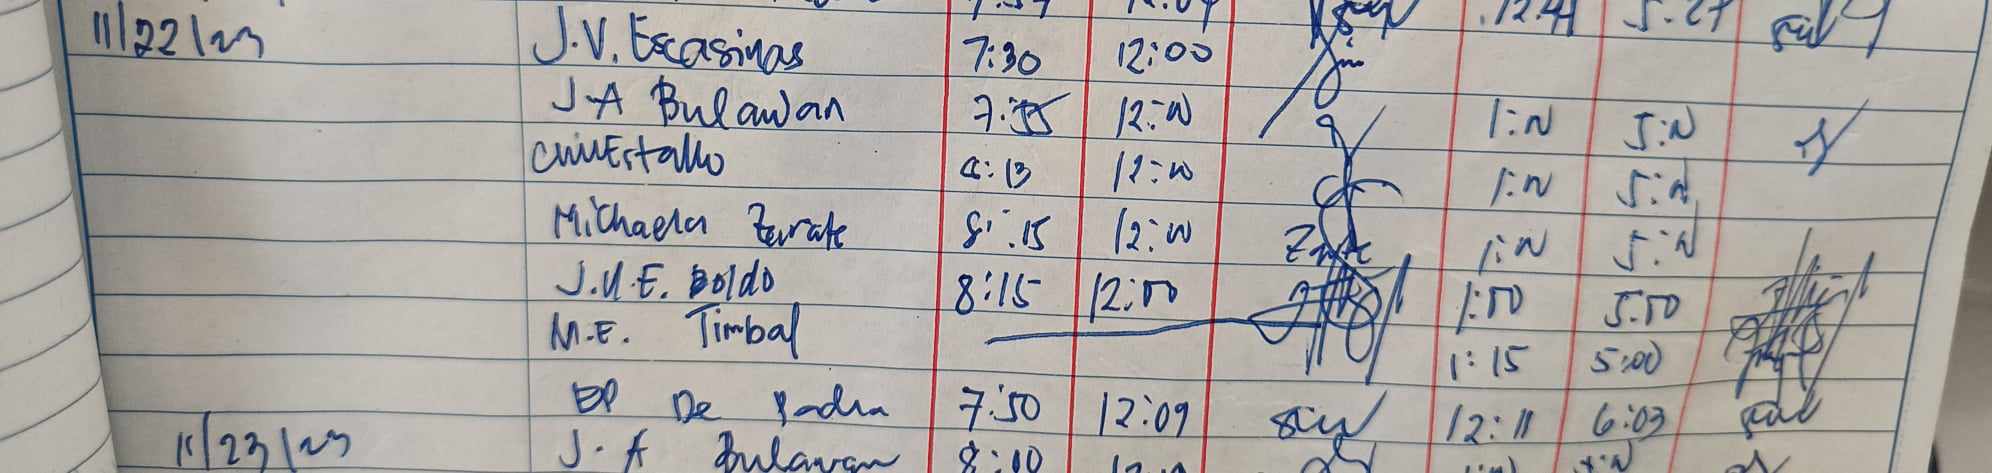 11/22/23 J.V. Escasinas 7:30 12:00
J.A Bulawan 7:55 12:00 1:00 5:00
8:13 12:00 1:00 5:00
Michaela Zarate 8:15 12:00 Zarate 1:00 5:00
J.U.E. Boldo 8:15 12:00 1:00 5:00
M.E. Timbal 1:15 5:00
EP De Padua 7:50 12:09 12:11 6:03
11/23/23 J.A Bulawan 8:00